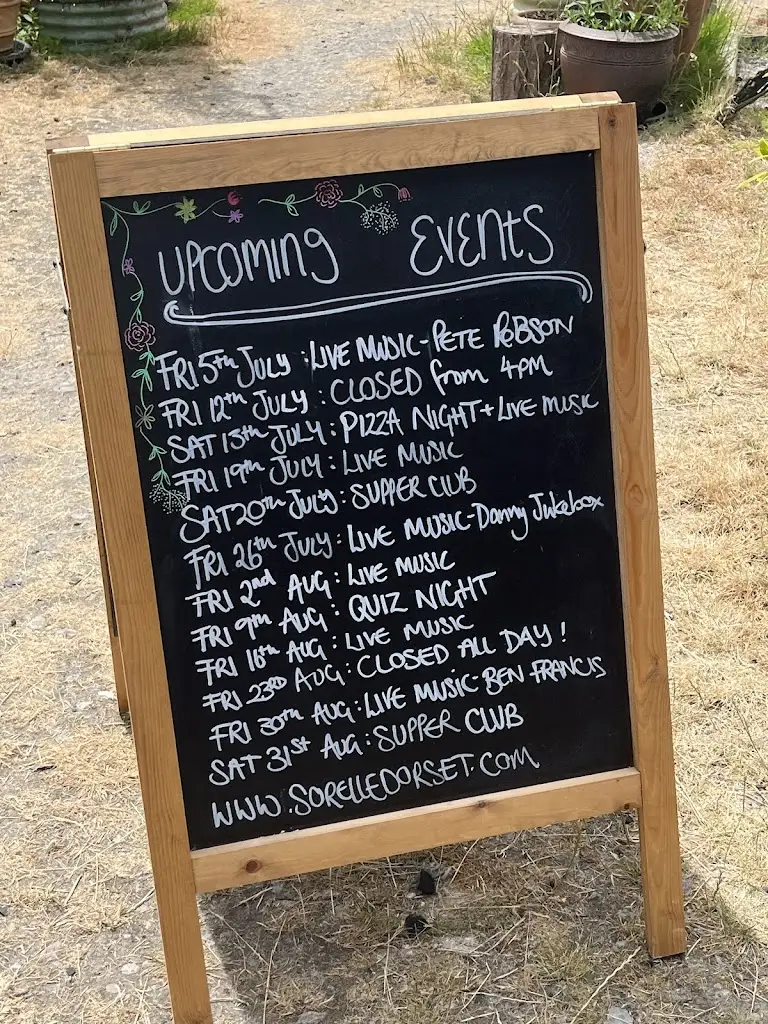 UPCOMING EVENTS
FRI 5th JULY : LIVE MUSIC - PETE ROBSON
FRI 12th JULY : CLOSED from 4PM
SAT 13th JULY : PIZZA NIGHT + LIVE MUSIC
FRI 19th JULY : LIVE MUSIC
SAT 20th JULY : SUPPER CLUB
FRI 26th JULY : LIVE MUSIC - Danny Jukebox
FRI 2nd AUG : LIVE MUSIC
FRI 9th AUG : QUIZ NIGHT
FRI 16th AUG : LIVE MUSIC
FRI 23RD AUG : CLOSED ALL DAY!
FRI 30th AUG : LIVE MUSIC - BEN FRANCIS
SAT 31st AUG : SUPPER CLUB
WWW.SORELLEDORSET.COM